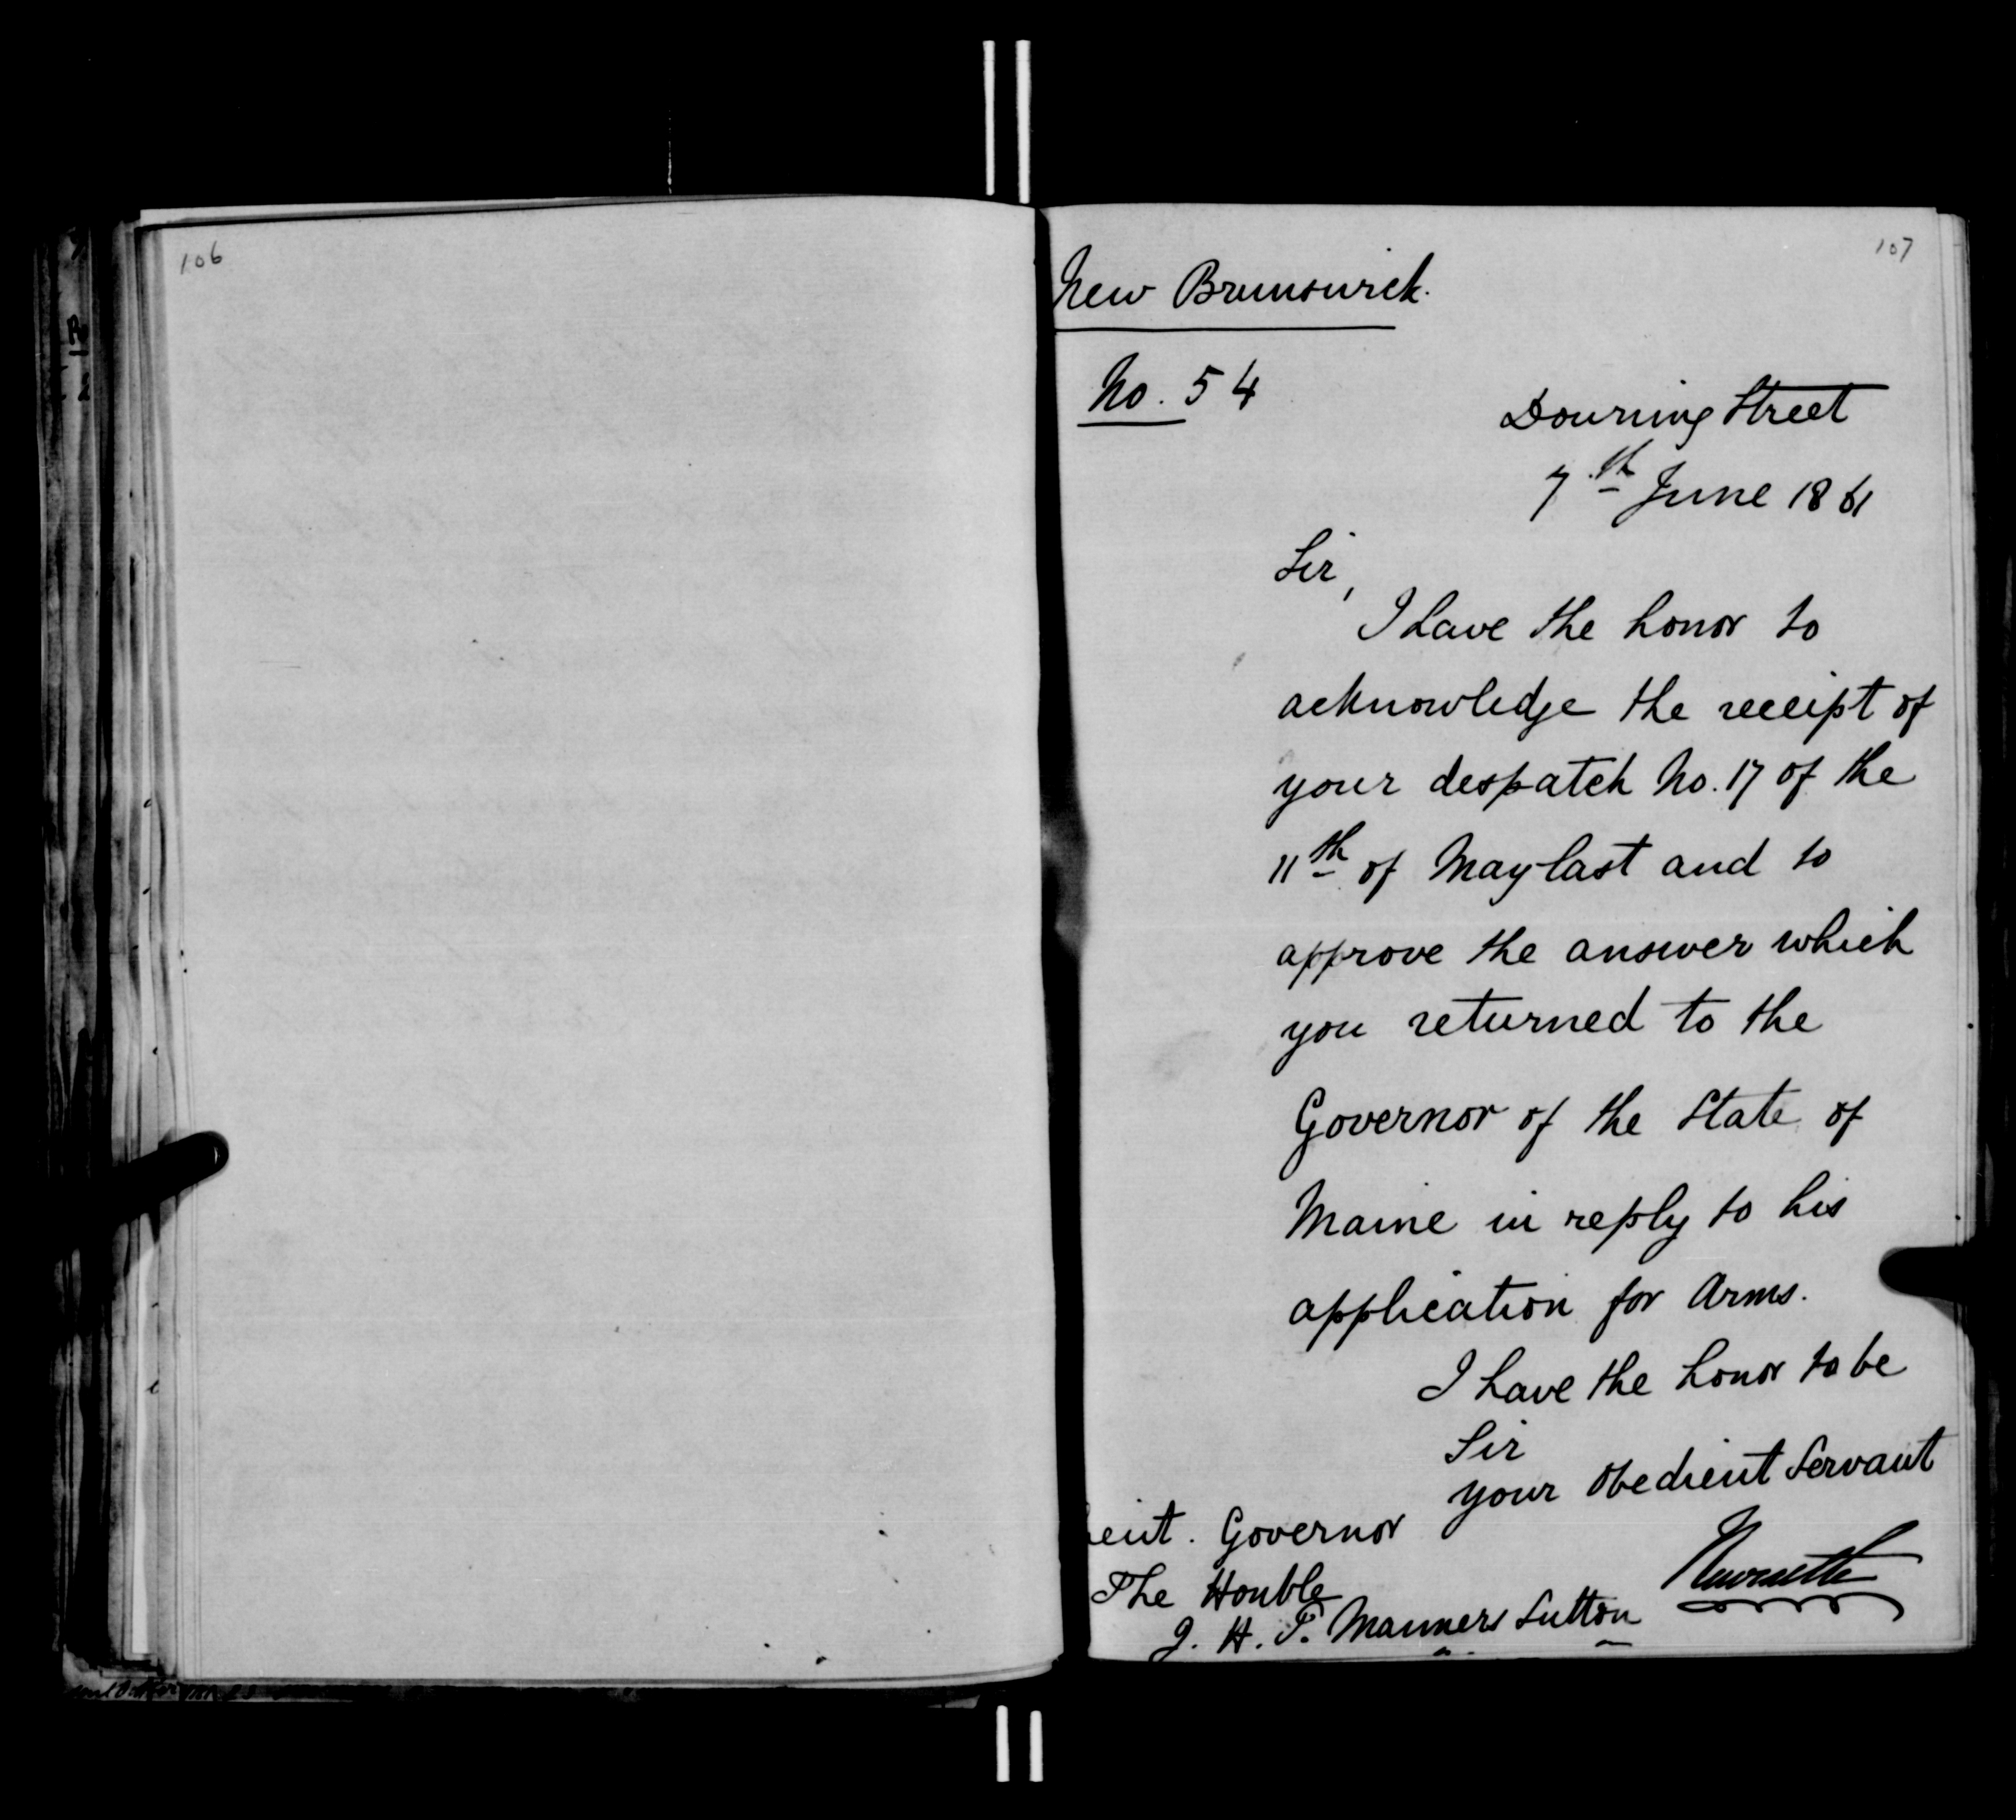 106
107
New Brunswick.
No. 54
Downing Street
7th June 1861
Sir,
I have the honor to
acknowledge the receipt of
your despatch No. 17 of the
11th of May last and to
approve the answer which
you returned to the
Governor of the State of
Maine in reply to his
application for Arms.
I have the honor to be
Sir
your obedient Servant
Newcastle
Lieut. Governor
The Honble
J. H. T. Manners Sutton